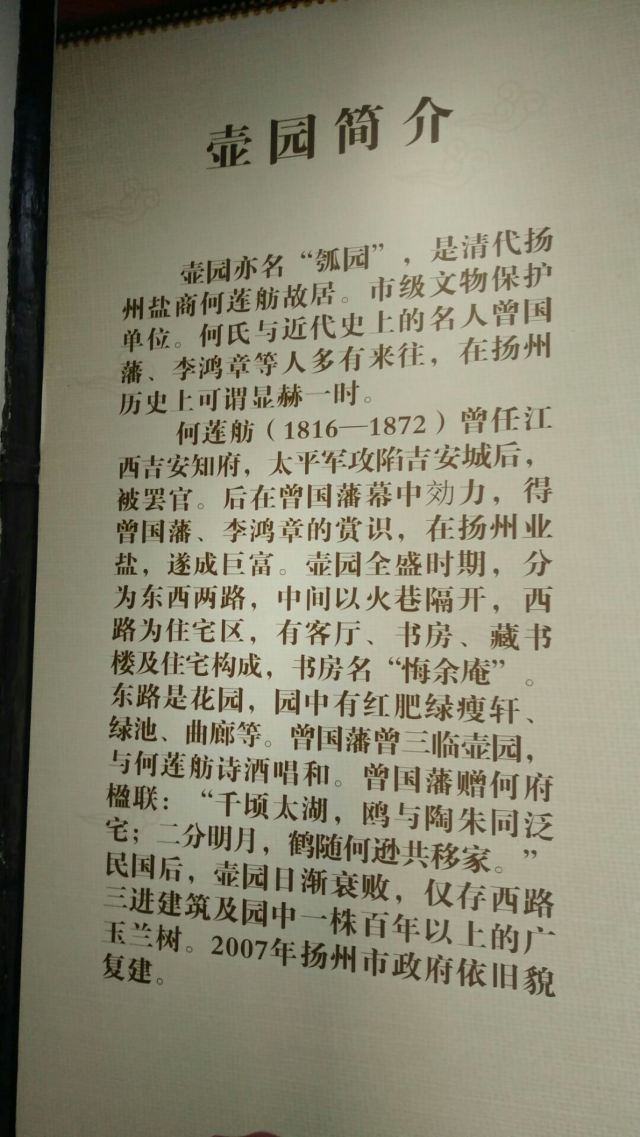 壶园简介
壶园亦名“瓠园”，是清代扬
州盐商何莲舫故居。市级文物保护
单位。何氏与近代史上的名人曾国
藩、李鸿章等人多有来往，在扬州
历史上可谓显赫一时。
何莲舫（1816—1872）曾任江
西吉安知府，太平军攻陷吉安城后，
被罢官。后在曾国藩幕中効力，得
曾国藩、李鸿章的赏识，在扬州业
盐，遂成巨富。壶园全盛时期，分
为东西两路，中间以火巷隔开，西
路为住宅区，有客厅、书房、藏书
楼及住宅构成，书房名“悔余庵”。
东路是花园，园中有红肥绿瘦轩、
绿池、曲廊等。曾国藩曾三临壶园，
与何莲舫诗酒唱和。曾国藩赠何府
楹联：“千顷太湖，鸥与陶朱同泛
宅；二分明月，鹤随何逊共移家。”
民国后，壶园日渐衰败，仅存西路
三进建筑及园中一株百年以上的广
玉兰树。2007年扬州市政府依旧貌
复建。